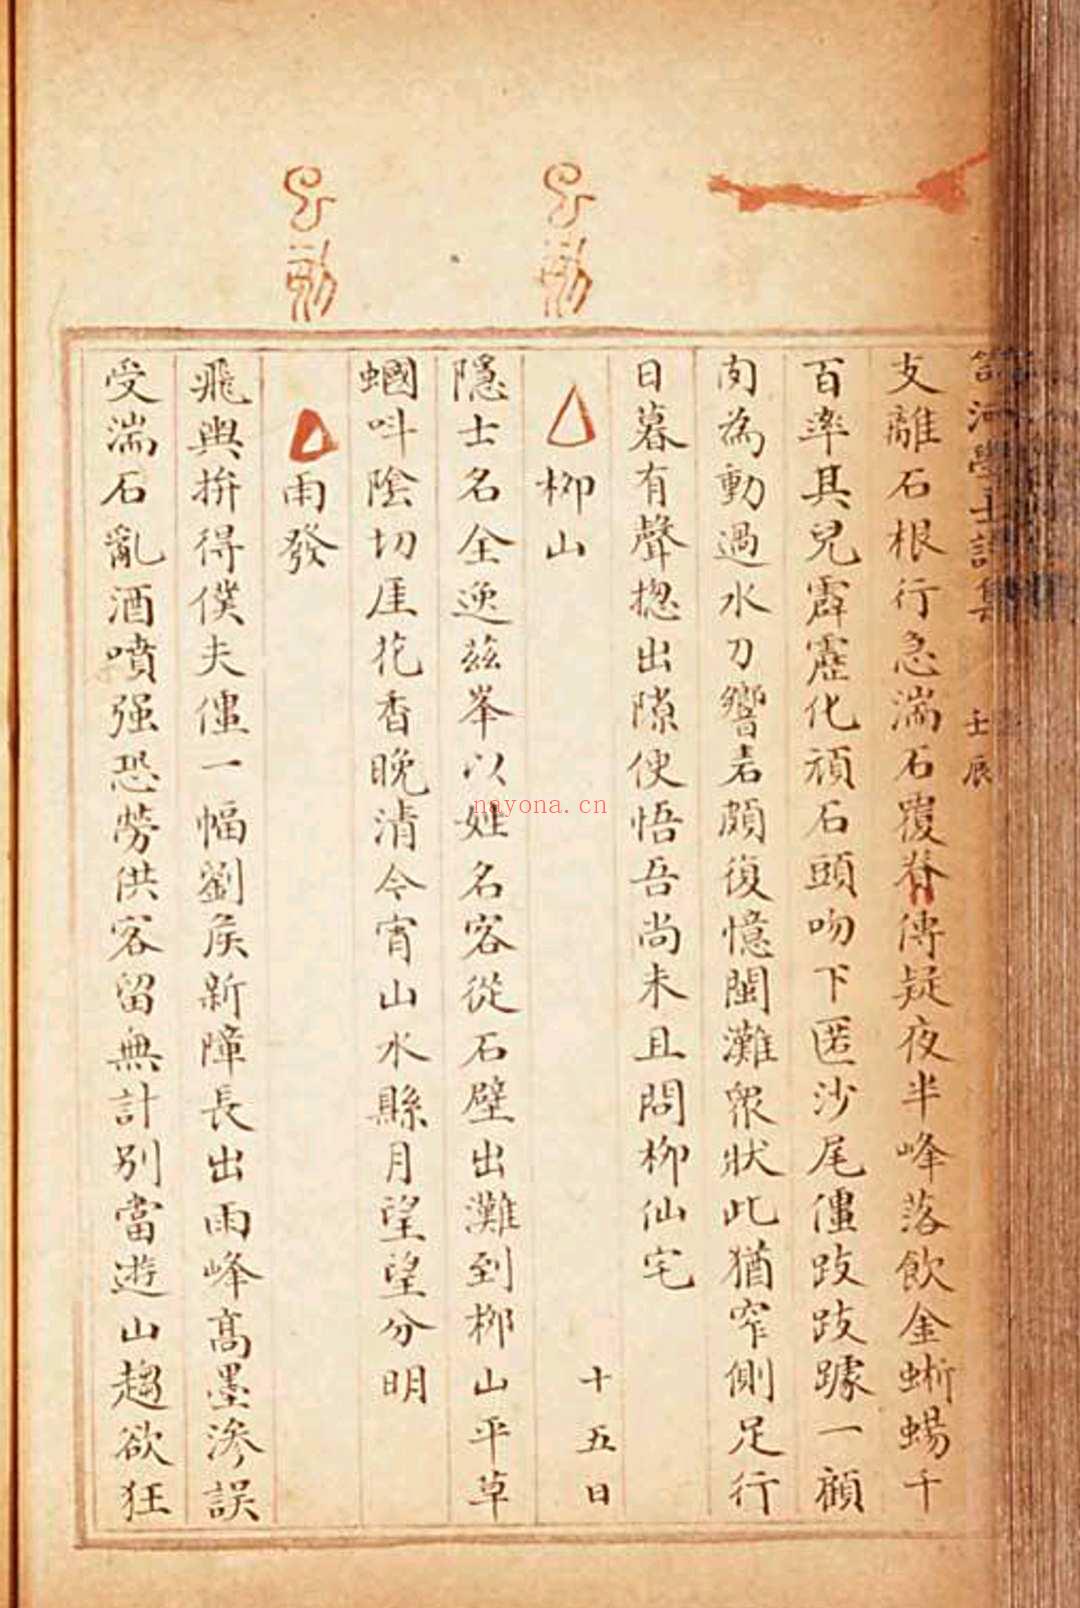 笥河學士詩集 壬辰
支離石根行急湍石覆脊傳疑夜半峰落飲金蜥蜴千
百率其兒霹靂化頑石頭吻下匿沙尾僵跂跂躆一顧
為動過水刀響岩頗復憶閩灘眾狀此猶窄側足行
日暮有聲揔出隙使悟吾尚未且問柳仙宅
柳山 十五日
隱士名全逸茲峯以姓名客從石壁出灘到柳山平草
蟈呌陰切厓花香晚清今宵山水縣月望望分明
雨發
飛輿拚得僕夫僵一幅劉侯新障長出雨峰高墨滲誤
受湍石亂酒噴强恐勞供客留無計別當遊山趨欲狂
nayona.cn